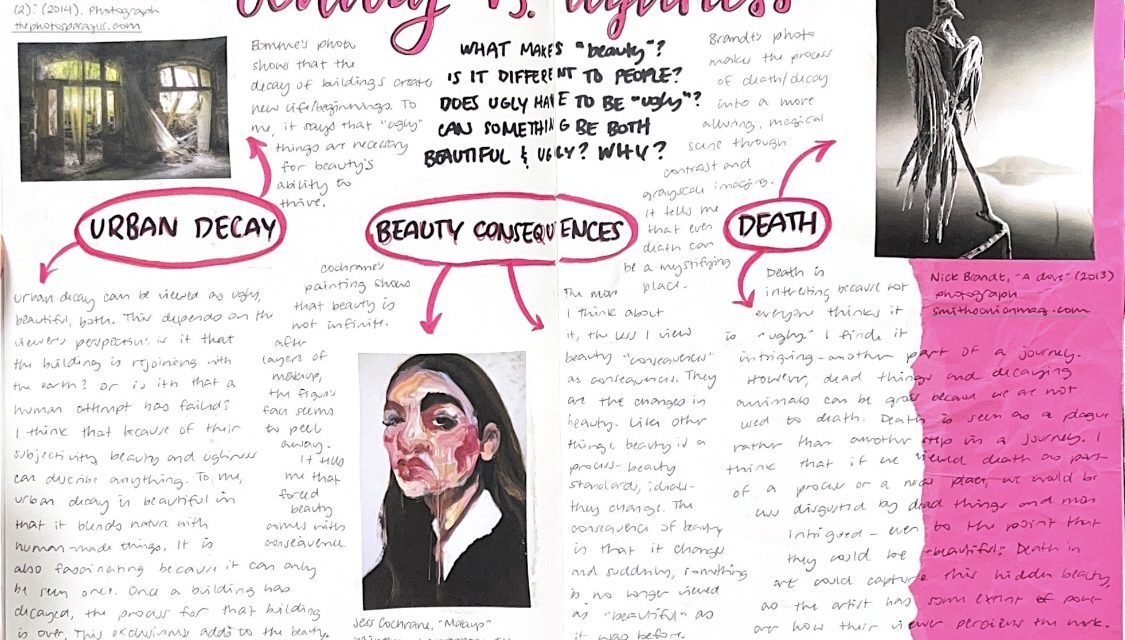 (2): (2014). Photograph
thephotosparagus.com
beauty vs. ugliness
photo
shows that the
decay of buildings create
new life/beginnings. To
me, it says that "ugly"
things are necessary
for beauty's
ability to
thrive.
WHAT MAKES "beauty"?
IS IT DIFFERENT TO PEOPLE?
DOES UGLY HAVE TO BE "ugly"?
CAN SOMETHING BE BOTH
BEAUTIFUL & UGLY? WHY?
Brandt's photo
makes the process
of death/decay
into a more
alluring, magical
scene through
contrast and
grayscale imaging.
It tells me
that even
death can
be a mystifying
place.
URBAN DECAY
BEAUTY CONSEQUENCES
DEATH
Urban decay can be viewed as ugly,
beautiful, both. This depends on the
viewer's perspective. Is it that
the building is rejoining with
the earth? Or is it that a
human attempt has failed?
I think that because of their
subjectivity beauty and ugliness
can describe anything. To me,
urban decay is beautiful in
that it blends nature with
human-made things. It is
also fascinating because it can only
be seen once. Once a building has
decayed, the process for that building
is over. This adds to the beauty.
Cochrane's
painting shows
that beauty is
not infinite.
After
layers of
makeup,
the figure's
face seems
to peel
away.
It tells
me that
forced
beauty
comes with
consequence.
Jess Cochrane, "Makeup"
The more
I think about
it, the less I view
beauty "consequences"
as consequences. They
are the changes in
beauty. Like other
things, beauty is a
process- beauty
standards, ideals-
they change. The
consequence of beauty
is that it changes
and suddenly, something
is no longer viewed
as "beautiful" as
it was before.
Nick Brandt, "A dove" (2013)
photograph
smithsonianmag.com
Death is
interesting because not
everyone thinks it
is "ugly." I find it
intriguing - another part of a journey.
However, dead things and decaying
animals can be gross because we are not
used to death. Death is seen as a plague
rather than another step in a journey. I
think that if we viewed death as part
of a process or a new place, we would be
less disgusted by dead things and more
intrigued - even to the point that
they could be beautiful. Death in
art could capture this hidden beauty
as the artist has some extent of power
over how their viewer perceives the work.